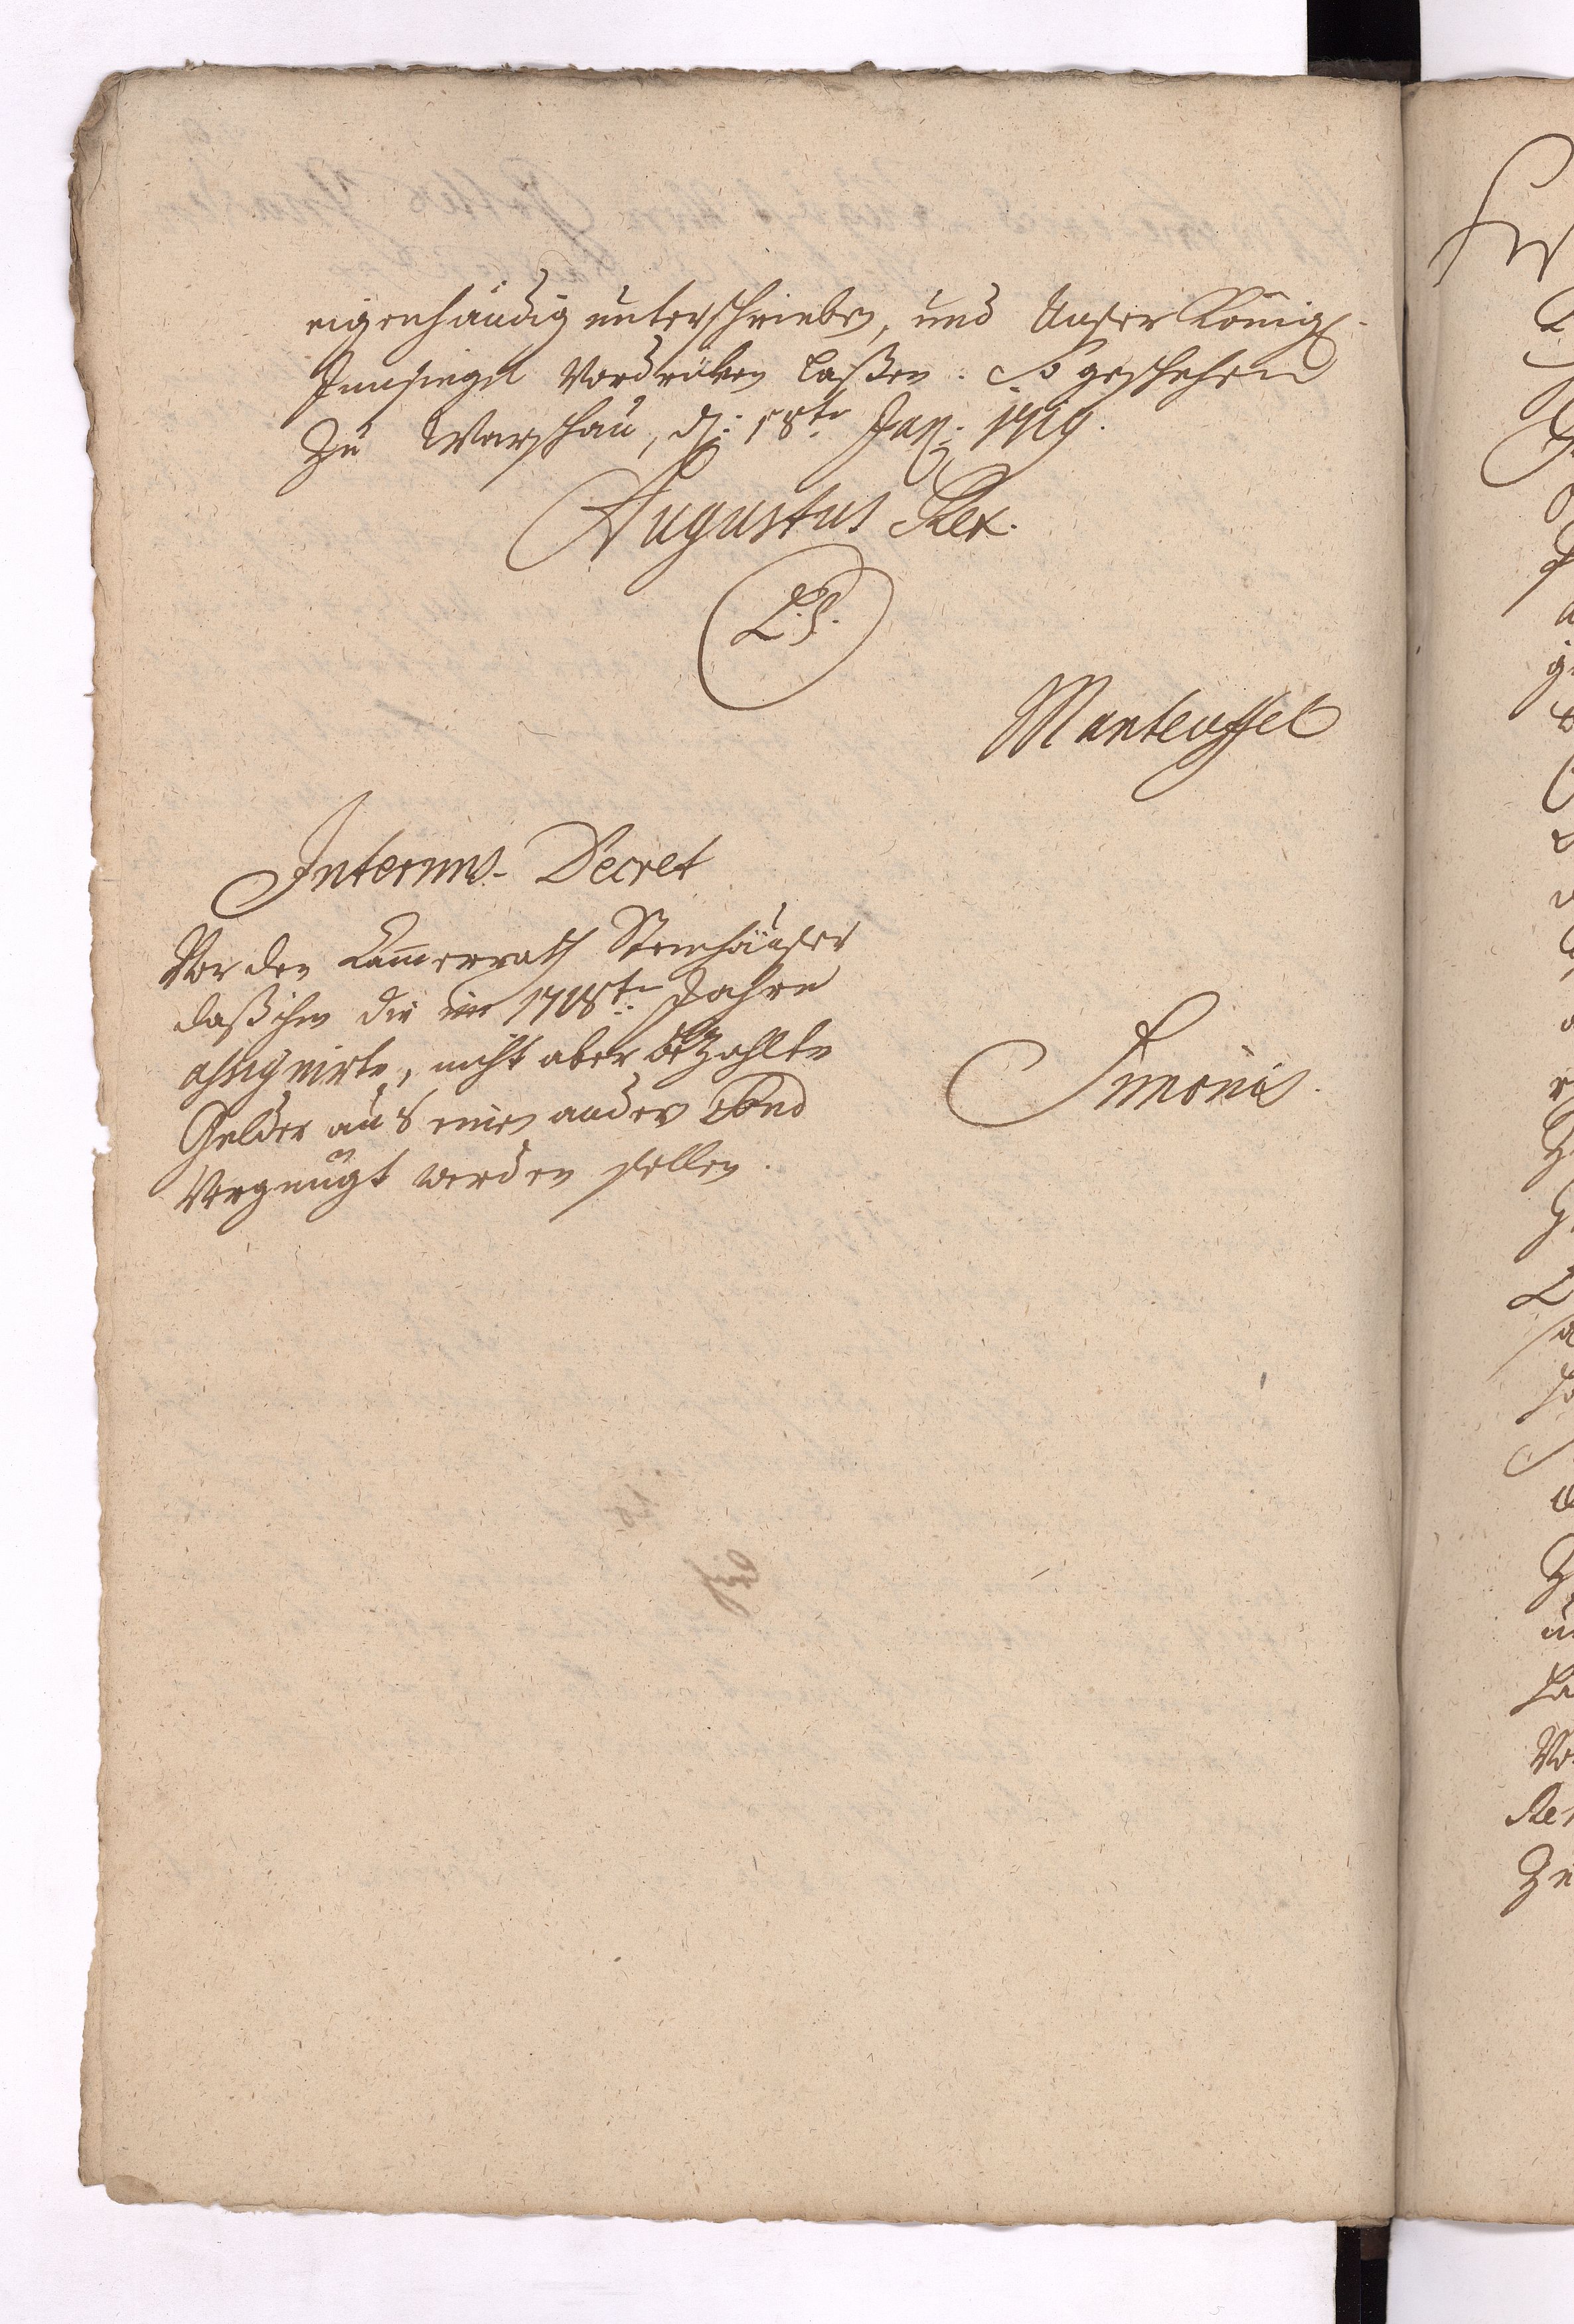 eigenhändig unterschrieben, und Unser Königl.
Innsiegel Vordrüken laßen. So geschehen
Zu Warschau, d. 18te Jan: 1719.
Augustus Rex.
L.S.
Manteuffel
Interims-Decret
Vor den Cammerrath Steinhäuser
daß ihm die im 1718te Jahre
assignirte, nicht aber bezahlte
Gelder aus einen andern Fond
Vergnügt werden sollen.
Simonis.